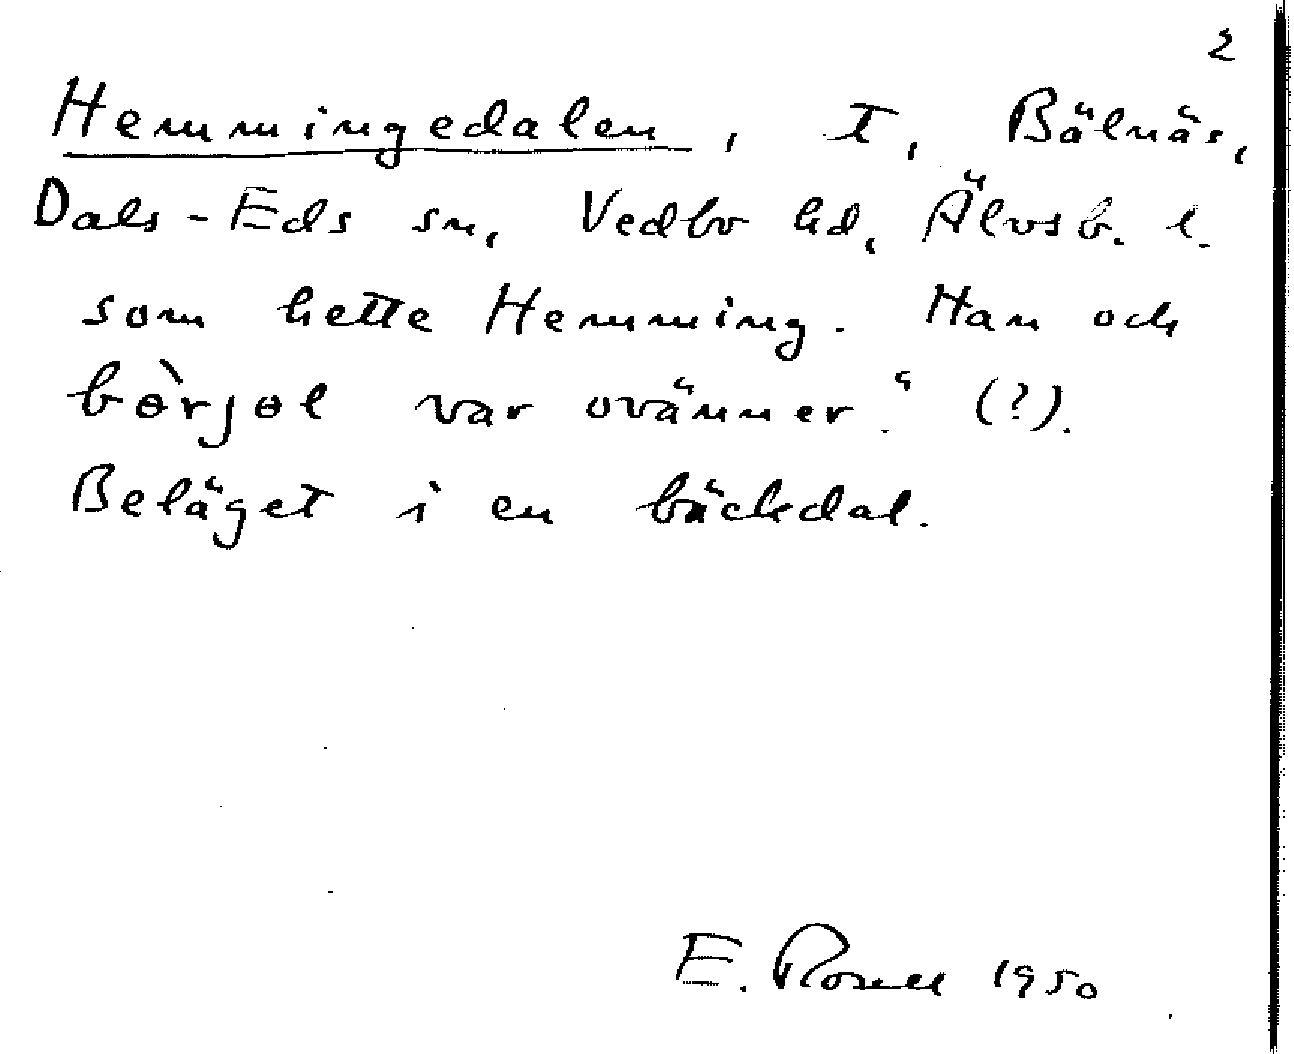 2
Hemmingedalen, t, Bälnäs,
Dals-Eds sn, Vedbo hd, Älvsb. l.
som hette Hemming. Han och
bɵ̀rjɵl var ovänner." (?).
Beläget i en bäckdal.
E. Rosell 1950